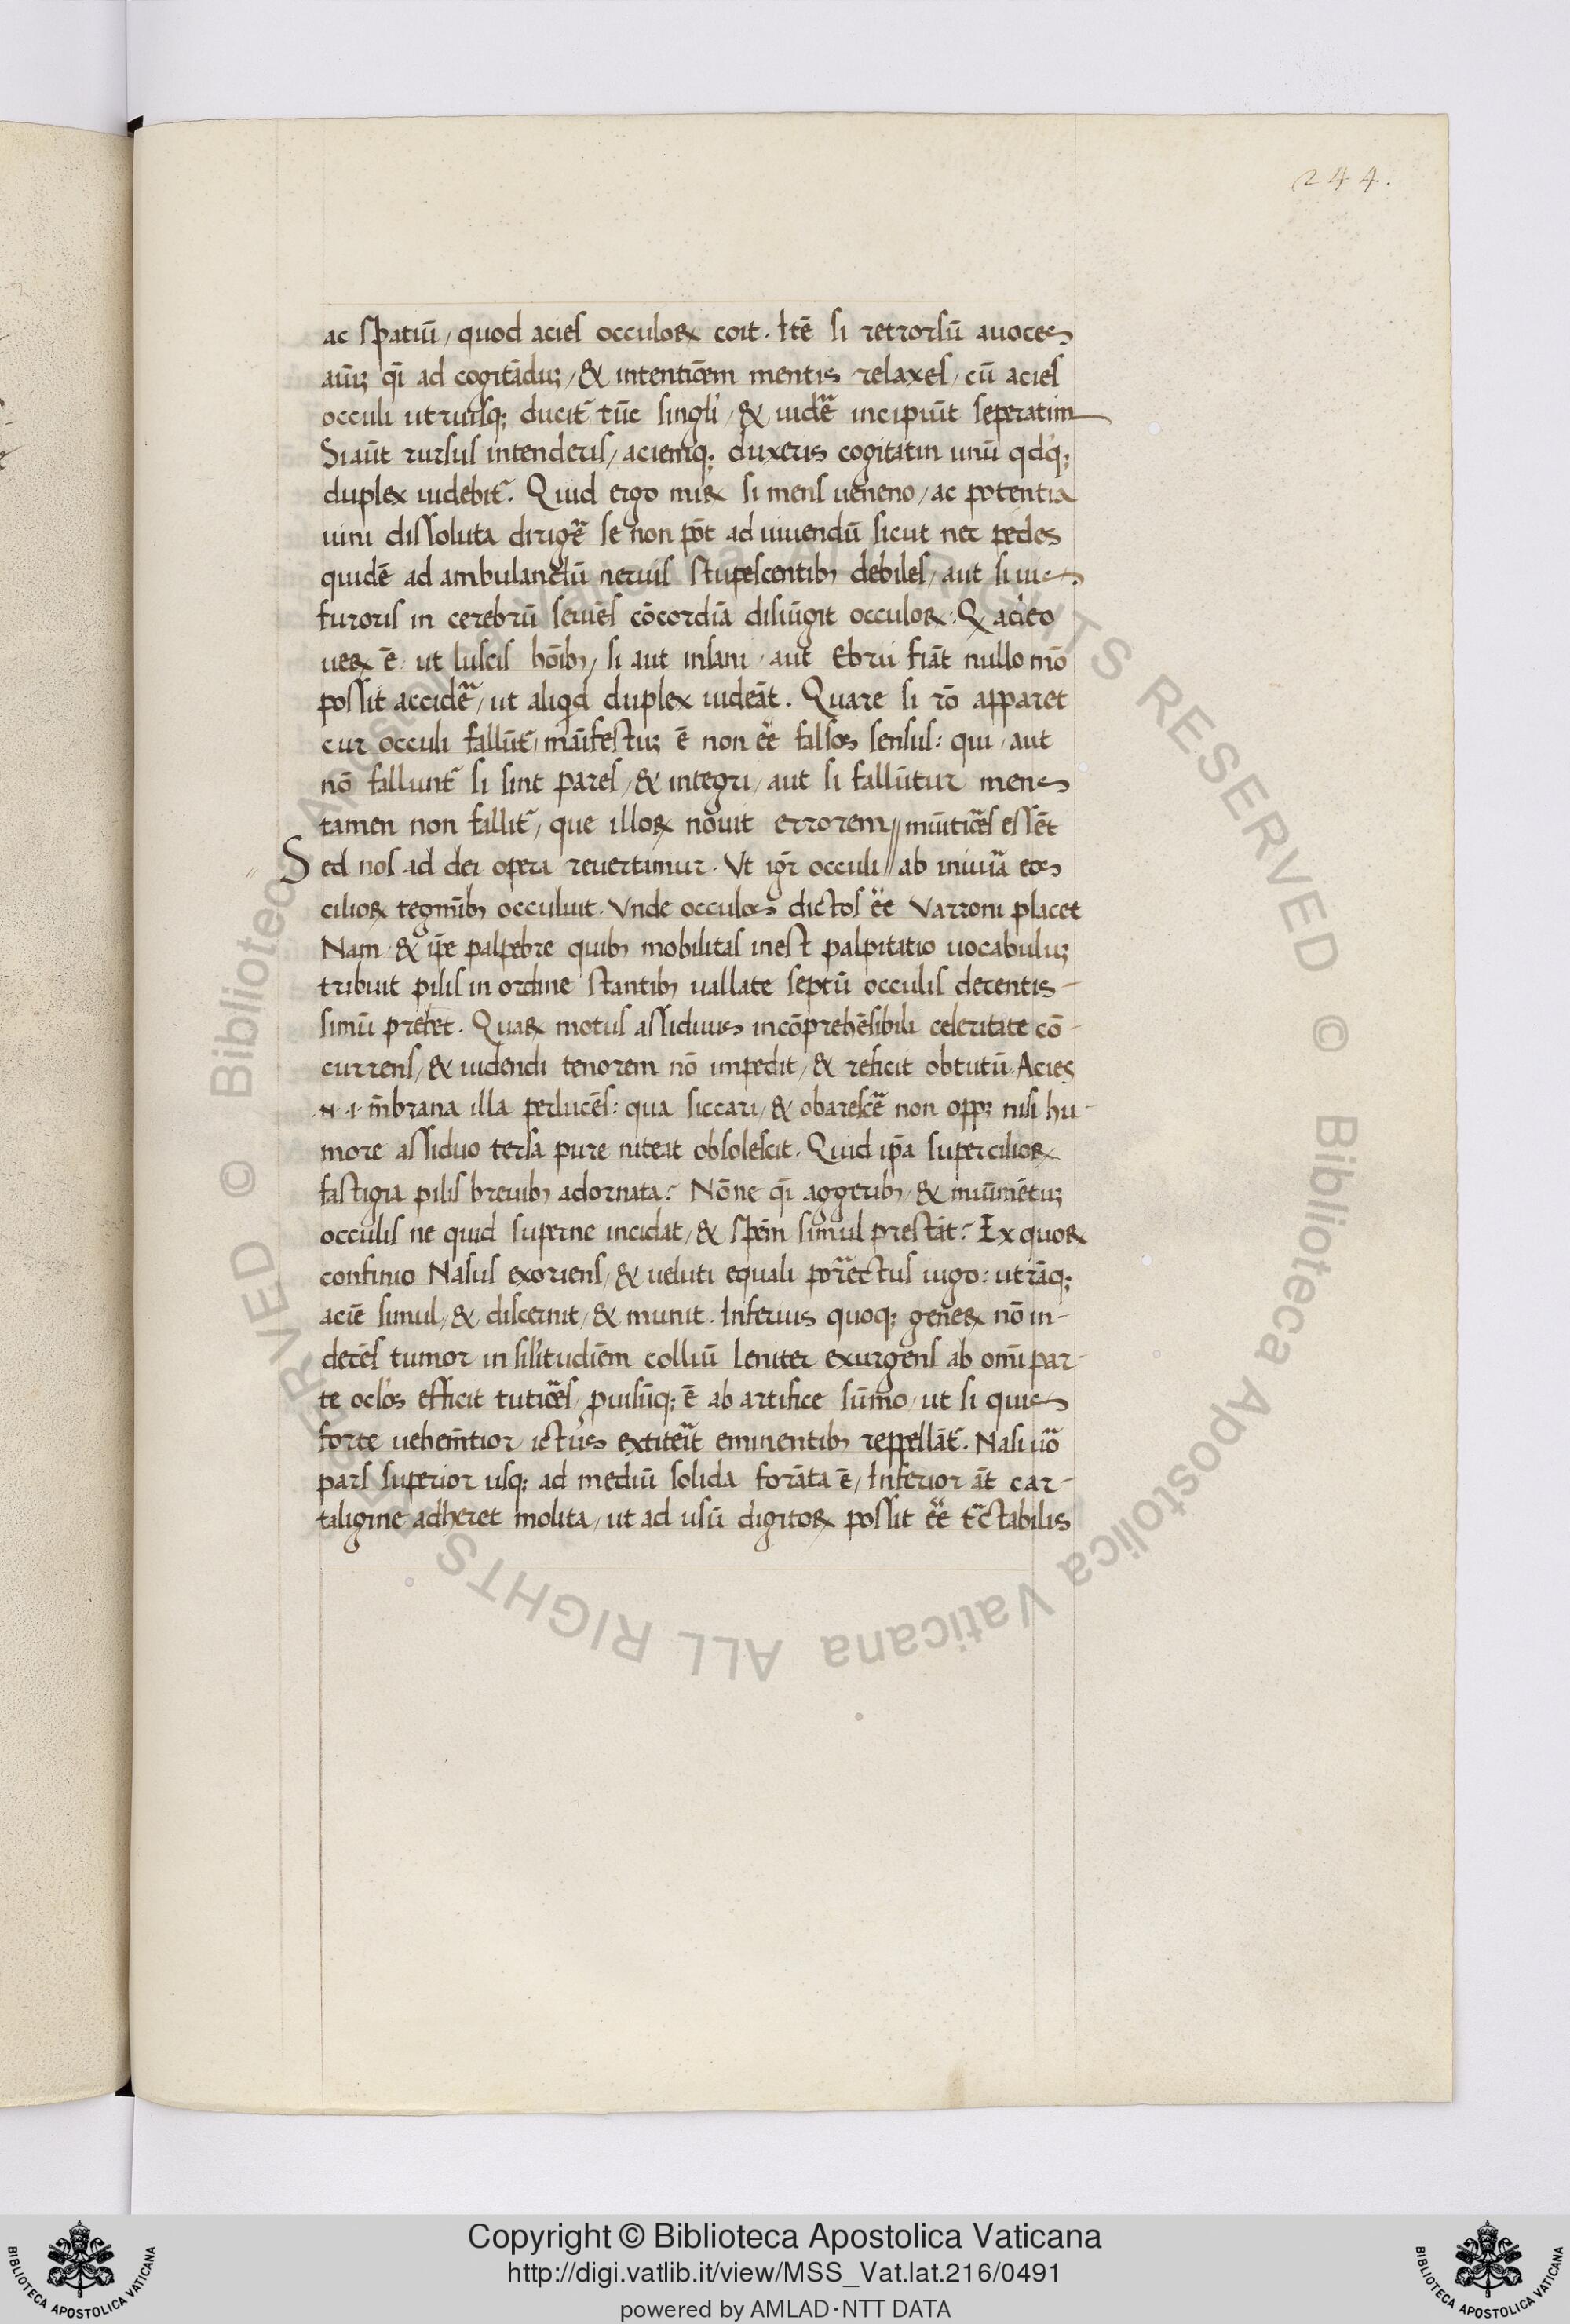 244.
ac spatiū / quod acies occuloꝝ coit. Itē si retrorsū auoces
aīuꝫ qͥ ad cogitāduꝫ / & intentiōem mentis relaxes / cū acies
occuli utriusqꝫ ducit̄ tūc singl̓i / & uidēr incipiūt seperatim
Si aūt rursus intenderis / aciemqꝫ duxeris cogitatin unū qd̓qꝫ
duplex uidebit̄. Quid ergo miꝝ si mens ueneno / ac potentia
uini dissoluta dirigēr se non pōt ad uiuendū sicut nec pedes
quidē ad ambulandū neruis stupescentibꝫ debiles / aut si uis
furoris in cerebrū seuiēs cōcordiā disiūgit occuloꝝ. Q̓ adeo
ueꝝ ē ut luscis hōibꝫ / si aut insani / aut Ebrii fiāt nullo mō
possit accidēr / ut aliqd duplex uideāt. Quare si rō apparet
cur occuli fallūt̄ / māifestuꝫ ē non eē falsos sensus: qui / aut
nō fallunt̄ si sint pares / & integri / aut si fallūtur mens
tamen non fallit̄ / que illoꝝ nouit errorem // mūitiōes essēt
Sed nos ad dei opera reuertamur. Vt igr̄ occuli // ab iniuīa eos
cilioꝝ tegmībꝫ occuluit. Vnde occulos dictos eē Varroni placet
Nam & ip̄e palpebre quibꝫ mobilitas inest palpitatio uocabuluꝫ
tribuit pilis in ordine stantibꝫ uallate septū occulis decentis-
simū prebet. Quaꝝ motus assiduus incōprehēsibili celeritate cō-
currens / & uidendi tenorem nō impedit / & reficit obtutū. Acies
.n. .i. m̄brana illa perlucēs: qua siccari / & obarescēr non opꝫ nisi hu-
more assiduo tersa pure niteat obsolescit. Quid ip̄a supercilioꝝ
fastigia pilis breuibꝫ adornata? Nōne qͥ aggeribꝫ / & mūimētuꝫ
occulis ne quid superne incidat / & spēm simul prestāt? Ex quoꝝ
confinio Nasus exoriens / & ueluti equali porrectus iugo: utrāqꝫ
aciē simul / & discernit / & munit. Inferius quoqꝫ geneꝝ nō in-
decēs tumor in sil̓itudiēm colliū leniter exurgens ab omī par-
te ocl̓os efficit tutiōes / prouisūqꝫ ē ab artifice sūmo / ut si quis
forte uehemn̄tior ictus extiterit eminentibꝫ reppellāt̄. Nasi uō
pars superior usqꝫ ad mediū solida formata ē / Inferior āt car-
taligine adheret molita / ut ad usū digitoꝝ possit eē tractabilis
© Biblioteca Apostolica Vaticana ALL RIGHTS RESERVED © Biblioteca Apostolica Vaticana ALL RIGHTS RESERVED
BIBLIOTECA APOSTOLICA VATICANA
Copyright © Biblioteca Apostolica Vaticana
http://digi.vatlib.it/view/MSS_Vat.lat.216/0491
powered by AMLAD·NTT DATA
BIBLIOTECA APOSTOLICA VATICANA